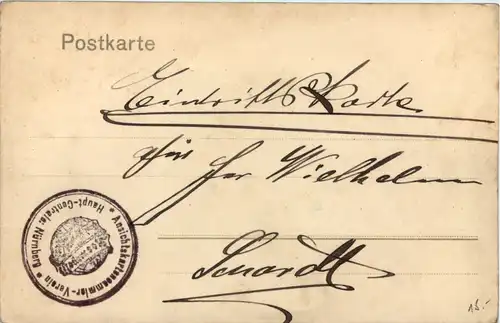 Postkarte
Eintrittskarte
für Herr Wilhelm
Ansichtskartensammler-Verein * Haupt-Centrale: Nürnberg *
15.-